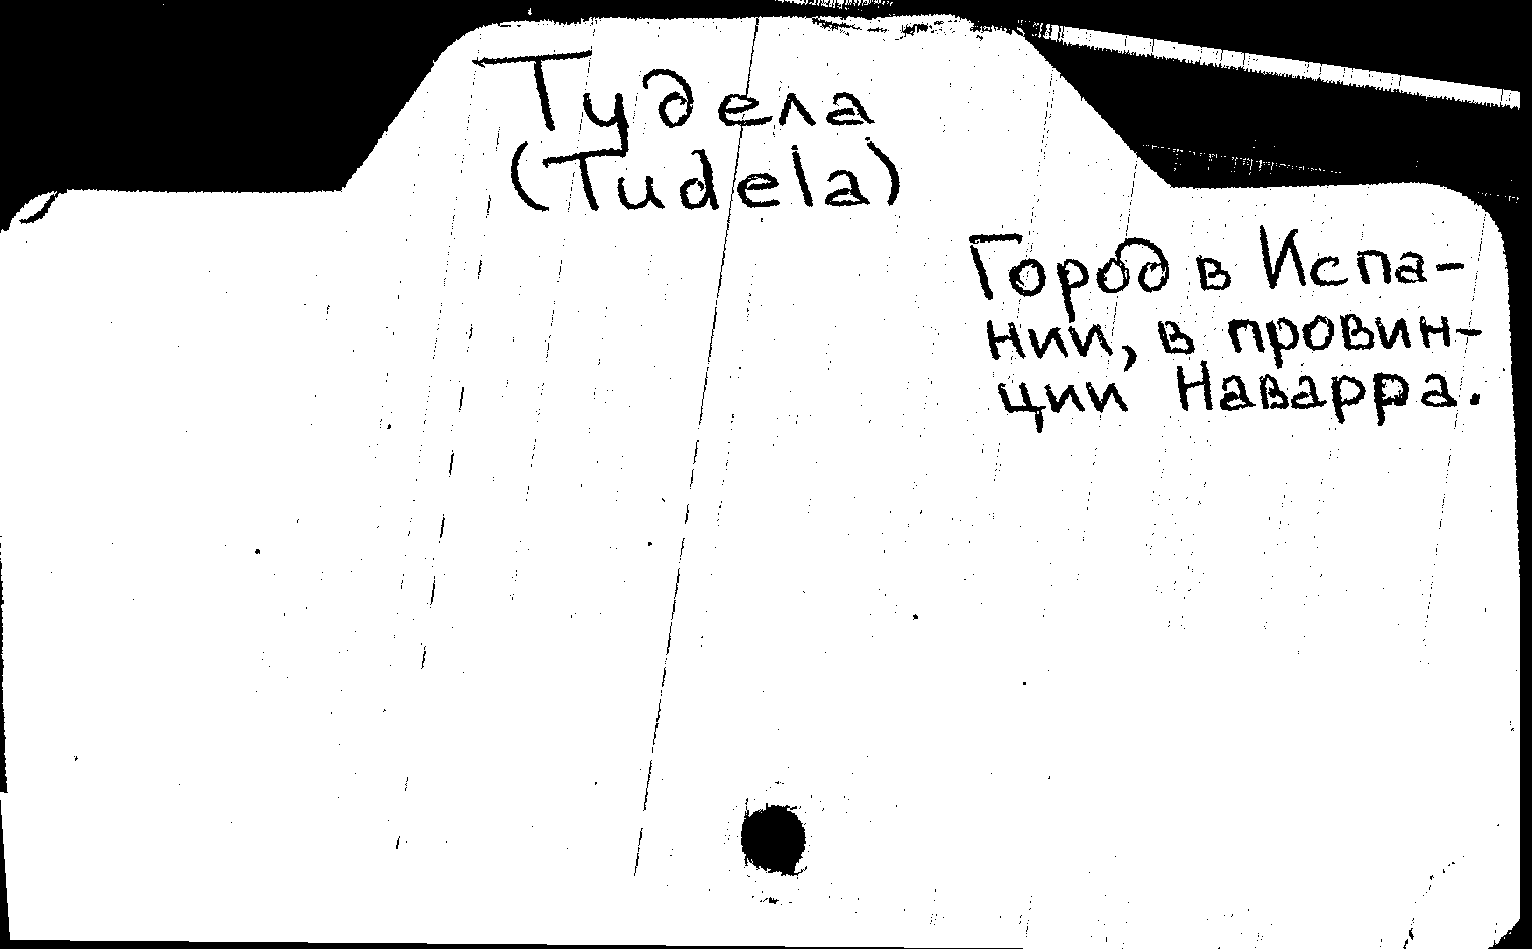 Тудела
(Tudela)
Город в Испа-
нии, в провин-
ции Наварра.